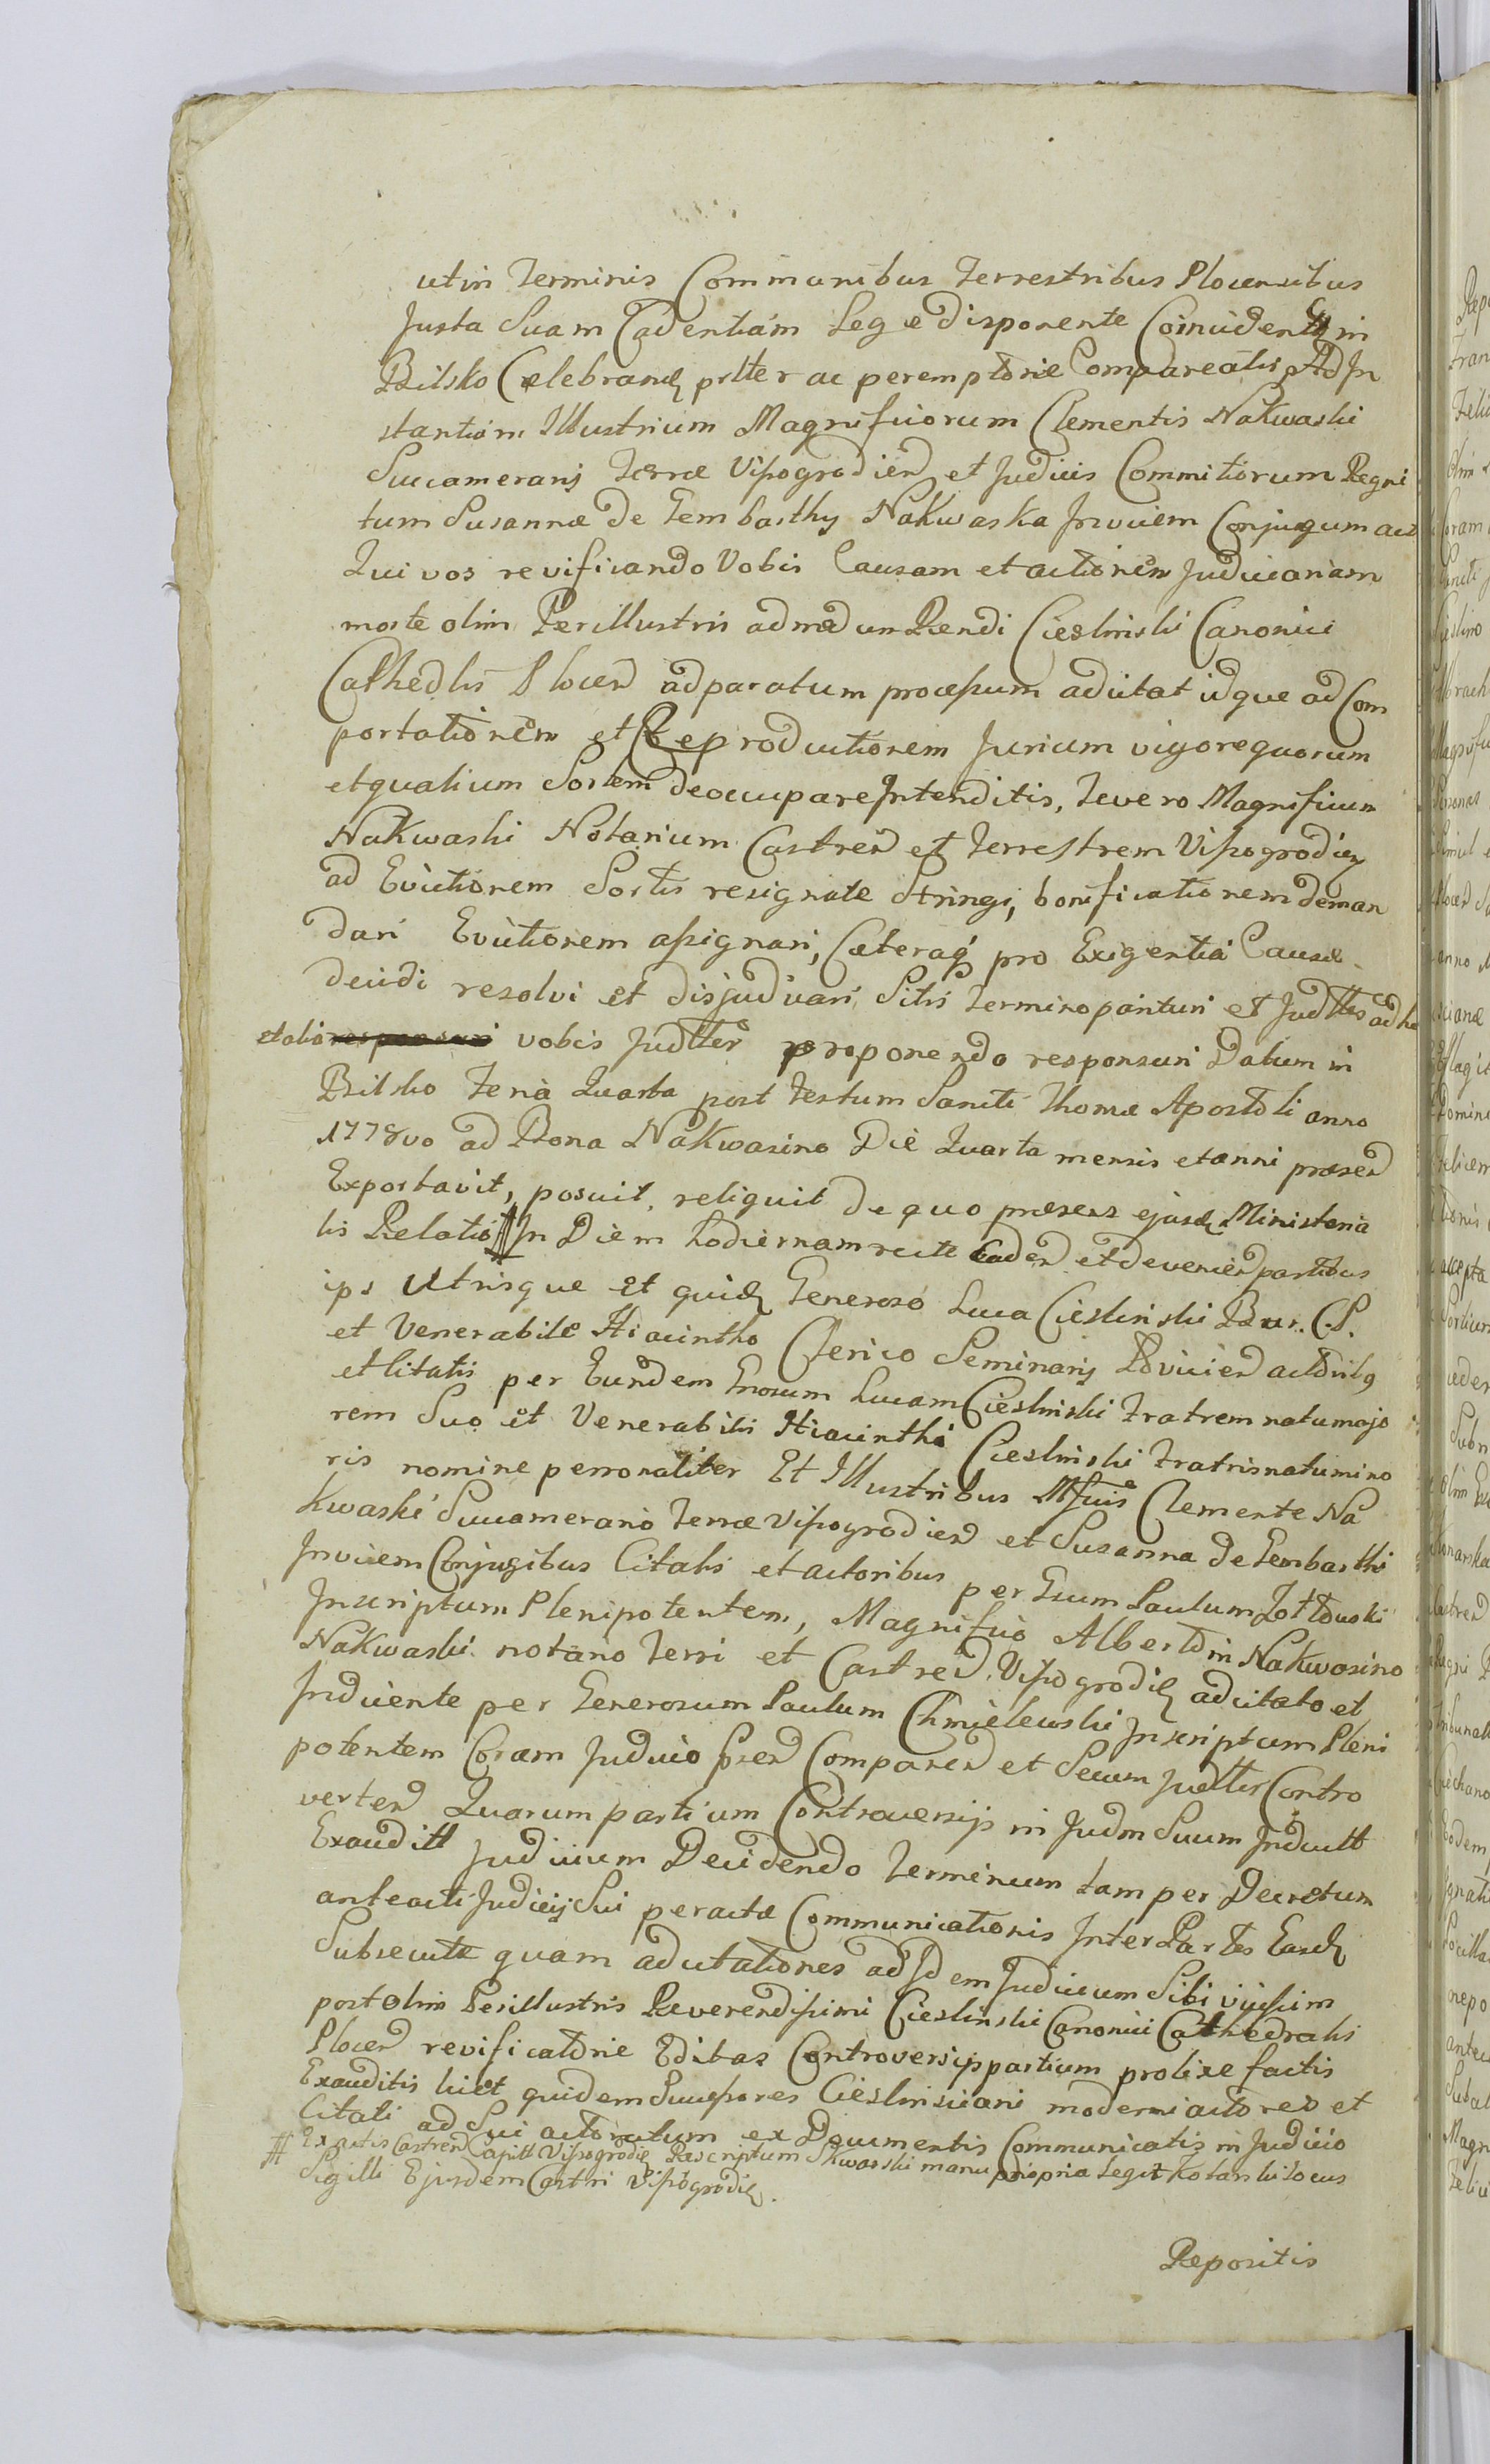 ut in Terminis Communibus Terrestribus Plocensibus
Justa Suam Cadentiam Lege disponente Coincidenti in
Bilsko Celebrand psllter ac peremptorie Compareatis Ad In
stantiam Illustrium Magnificorum Clementis Nakwaski
Succamerarij Terræ Vissogrodien et Judicis Commitiorum Regni
tum Susannæ de Gembarthy Nakwaska Invicem Conjugum act
Qui vos revificando Vobis Causam et actionem Judiciariam
morte olim Perillustris admodum Rendi Cieslinski Canonici
Cathedlis Plocen ad paratum processum adcitat idque ad Com
portationem et Reproductionem Jurium vigore quorum
et qualium Sortem deoccupare Intenditis, Se vero Magnificum
Nakwaski Notarium Castren et Terrestrem Vissogrodien
ad Evictionem Sortis resignate Stringi, bonificationem deman
dari Evictionem assignari, Cæteraq pro Exigentia Causæ
decidi resolvi et disjudicari Sitis Termino parituri et Judllter ad
et alia vobis Judllter proponendo responsuri Datum in
Bilsko Feria Quarta post Festum Sancti Thomæ Apostoli anno
1778vo ad Bona Nakwasino Die Quarta mensis et anni præsen
Exportavit, posuit, reliquit de quo præsens ejusd Ministeria
lis Relatio # In Diem hodiernam recte Caden et devenien partibus
ips Utrisque et quid Generoso Luca Cieslinski Bur. C. P.
et Venerabile Hiacintho Clerico Seminarij Lovicien actorib9
et Citatis per Eundem Gnosum Lucam Cieslinski Fratrem natu majo
rem Suo et Venerabilis Hiacinthi Cieslinski Fratris natu mino
ris nomine personaliter Et Illustribus Mfcis Clemente Na
kwaski Succamerario Terræ Vissogrodien et Susanna de Gembarthi
Invicem Conjugibus Citatis et actoribus per Gsum Paulum Zottowski
Inscriptum Plenipotentem, Magnifico Alberto in Nakwasino
Nakwaski notario Terri et Castren. Vissogrodien adcitato et
Inducente per Generosum Paulum Chmielewski Inscriptum Pleni
potentem Coram Judicio Præsen Comparen et Secum Judllter Contro
verten Quarum partium Controversijs in Judm Suum Induclt
Exauditt Judicium Decidendo Terminum tam per Decretum
anteacti Judicij Sui peractæ Communicationis Inter Partes Easd
Subsecutæ quam adcitationes ad Idem Judicium Sibi vicissim
post olim Perillustris Reverendissimi Cieslinski Canonici Cathedralis
Plocen revificatorie Editas Controversijs partium prolixe factis
Exauditis licet quidem Successores Cieslinsciani moderni actores et
Citati ad Sui actoratum ex Documentis Communicatis in Judicio
# Ex actis Castren Capitt Vissogrodien Rescriptum S Kwarski manu propria Legit Kolarski Locus
Sigilli Ejusdem Castri Vissogrodien.
Repositis